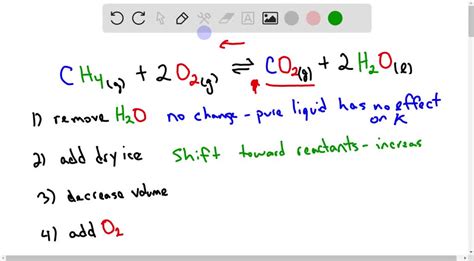 CH4(g) + 2O2(g) ⇌ CO2(g) + 2H2O(l)
1) remove H2O no change - pure liquid has no effect on K
2) add dry ice Shift toward reactants - increas
3) decrease volume
4) add O2